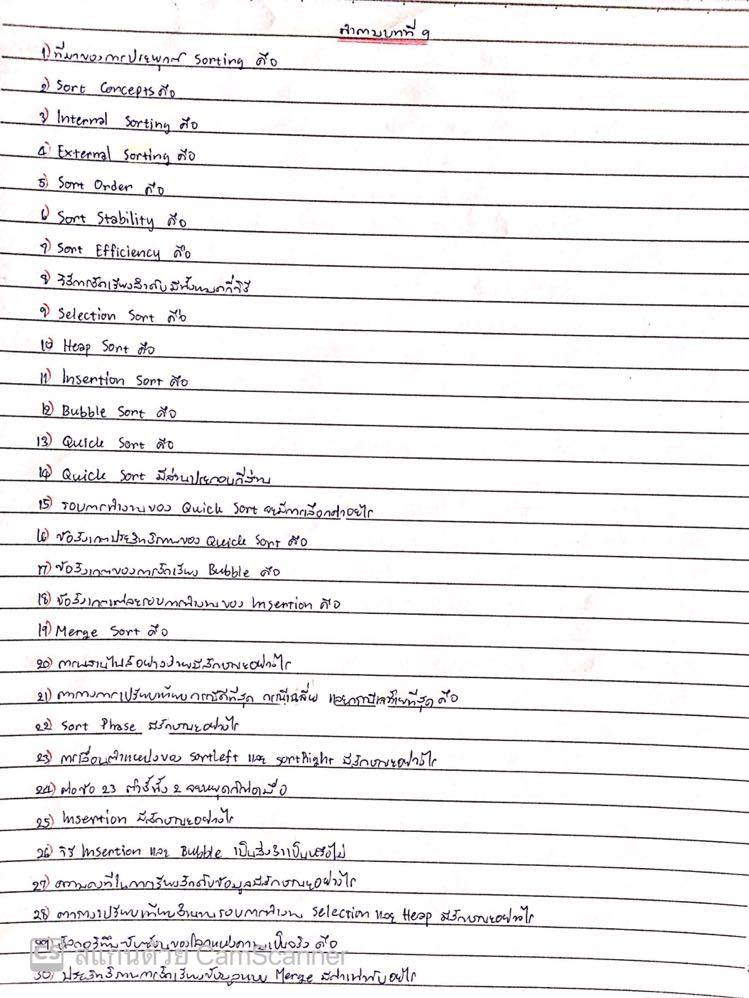 คำถามบทที่ 9
1) ที่มาของการประยุกต์ Sorting คือ
2) Sort Concepts คือ
3) Internal Sorting คือ
4) External Sorting คือ
5) Sort Order คือ
6) Sort Stability คือ
7) Sort Efficiency คือ
8) วิธีการจัดเรียงลำดับมีทั้งหมดกี่วิธี
9) Selection Sort คือ
10) Heap Sort คือ
11) Insertion Sort คือ
12) Bubble Sort คือ
13) Quick Sort คือ
14) Quick Sort มีส่วนประกอบกี่ส่วน
15) รอบการทำงานของ Quick Sort จะมีการเลือกค่าอย่างไร
16) ข้อสังเกตประสิทธิภาพของ Quick Sort คือ
17) ข้อสังเกตของการจัดเรียง Bubble คือ
18) ข้อสังเกตแต่ละรอบการทำงานของ Insertion คือ
19) Merge Sort คือ
20) การผสานไฟล์อย่างง่ายมีลักษณะอย่างไร
21) ตารางการเปรียบเทียบกรณีดีที่สุด กรณีเฉลี่ย และกรณีเลวร้ายที่สุด คือ
22) Sort Phase มีลักษณะอย่างไร
23) การเลื่อนตำแหน่งของ SortLeft และ SortRight มีลักษณะอย่างไร
24) ต่อข้อ 23 ตัวชี้ทั้ง 2 จะหยุดก็ต่อเมื่อ
25) Insertion มีลักษณะอย่างไร
26) วิธี Insertion และ Bubble เป็นสิ่งจำเป็นหรือไม่
27) ความคงที่ในการเรียงลำดับข้อมูลมีลักษณะอย่างไร
28) ตารางเปรียบเทียบจำนวนรอบการทำงาน Selection และ Heap มีลักษณะอย่างไร
29) อัลกอริทึมซับซ้อนของโลกแห่งความเป็นจริง คือ
30) ประสิทธิภาพการจัดเรียงข้อมูลแบบ Merge มีค่าเท่ากับอย่างไร
CS สแกนด้วย CamScanner